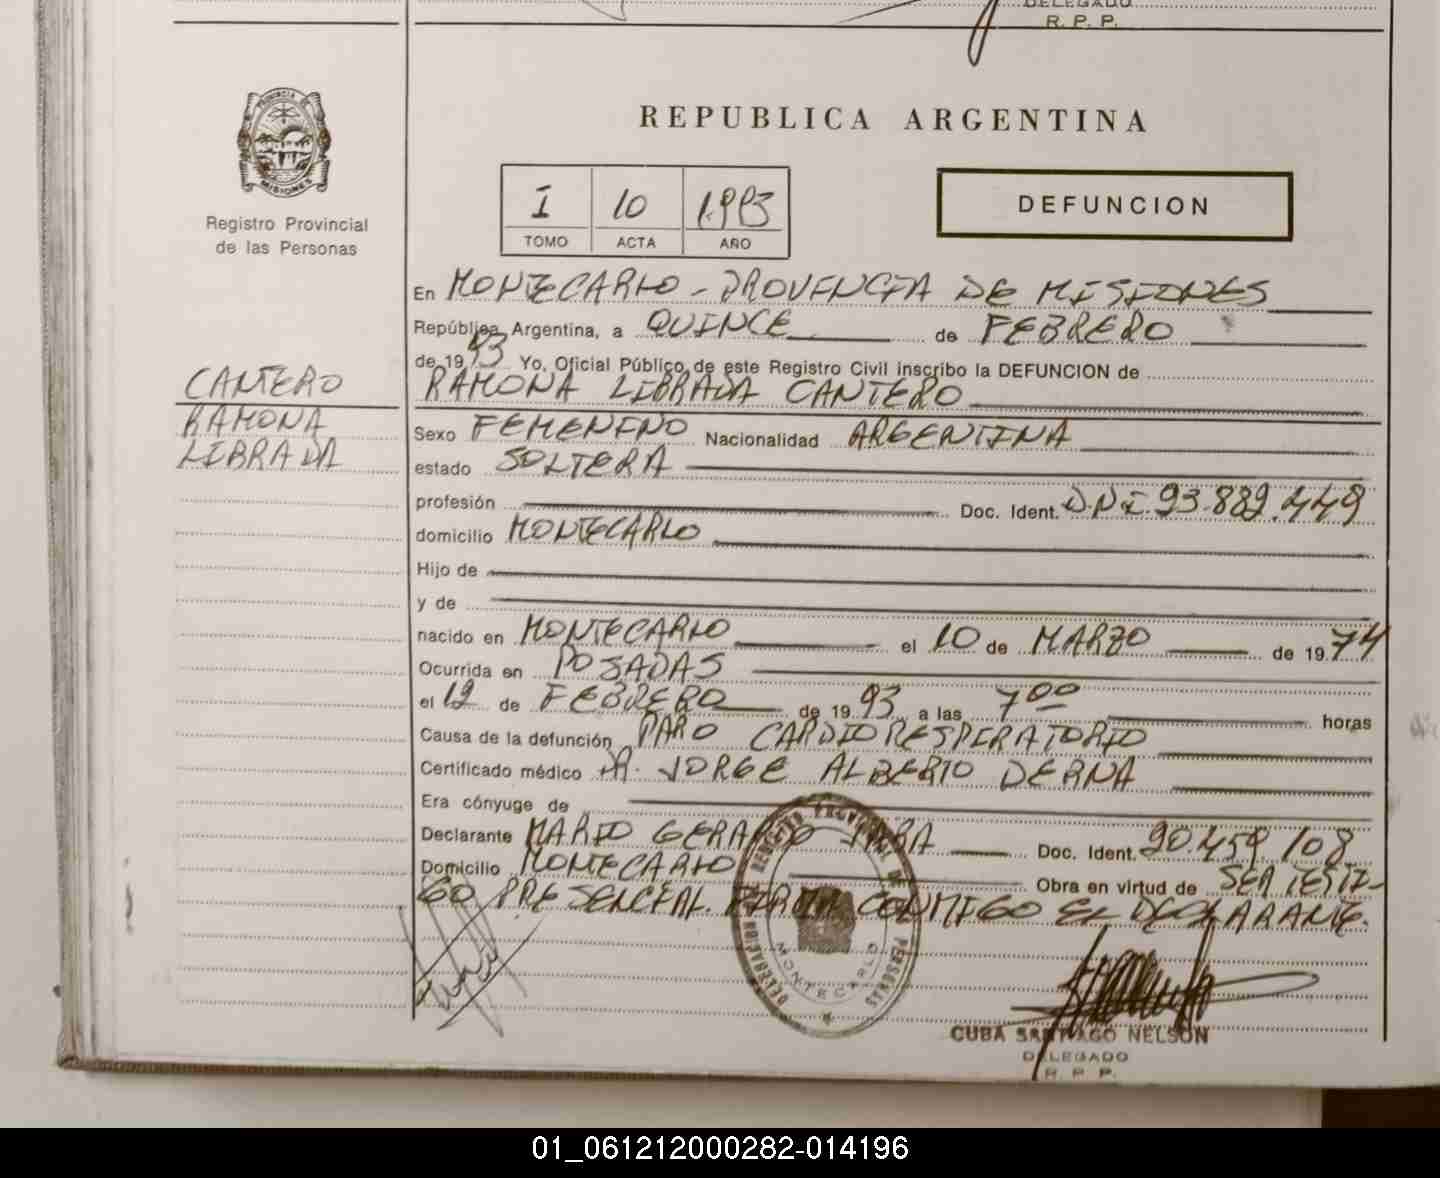 DELEGADO
R. P. P.
PROVINCIA DE
MISIONES
Registro Provincial
de las Personas
REPUBLICA ARGENTINA
I 10 1.993
TOMO ACTA AÑO
DEFUNCION
En MONTECARLO - PROVINCIA DE MISIONES
República Argentina, a QUINCE de FEBRERO
de 19 93 Yo, Oficial Público de este Registro Civil inscribo la DEFUNCION de
RAMONA LIBRADA CANTERO
CANTERO
RAMONA
LIBRADA
Sexo FEMENINO Nacionalidad ARGENTINA
estado SOLTERA
profesión Doc. Ident. D.N.I. 93.889.449
domicilio MONTECARLO
Hijo de
y de
nacido en MONTECARLO el 10 de MARZO de 19 74
Ocurrida en POSADAS
el 12 de FEBRERO de 19 93 a las 7 00 horas
Causa de la defunción PARO CARDIORESPIRATORIO
Certificado médico DR. JORGE ALBERTO DERNA
Era cónyuge de
Declarante MARIO GERARDO JARA Doc. Ident. 90.459.108
Domicilio MONTECARLO Obra en virtud de SER TESTI-
GO PRESENCIAL. FIRMA CONMIGO EL DECLARANTE.
DELEGACION REGISTRO PROVINCIAL DE LAS PERSONAS
MONTECARLO
CUBA SANTIAGO NELSON
DELEGADO
R. P. P.
01_061212000282-014196